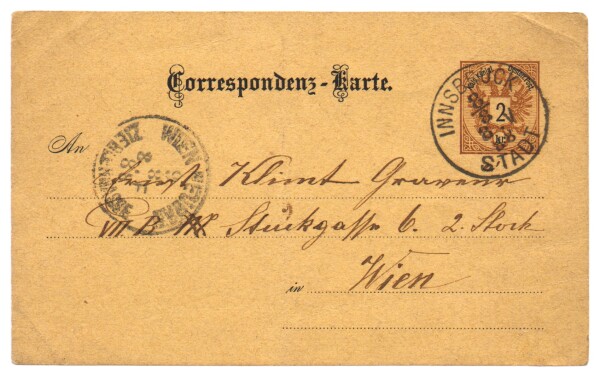 Correspondenz-Karte.
INNSBRUCK
STADT
2
An
Ernst Klimt Graveur
VII B Stuckgasse 6. 2. Stock
in Wien
WIEN NEUBAU